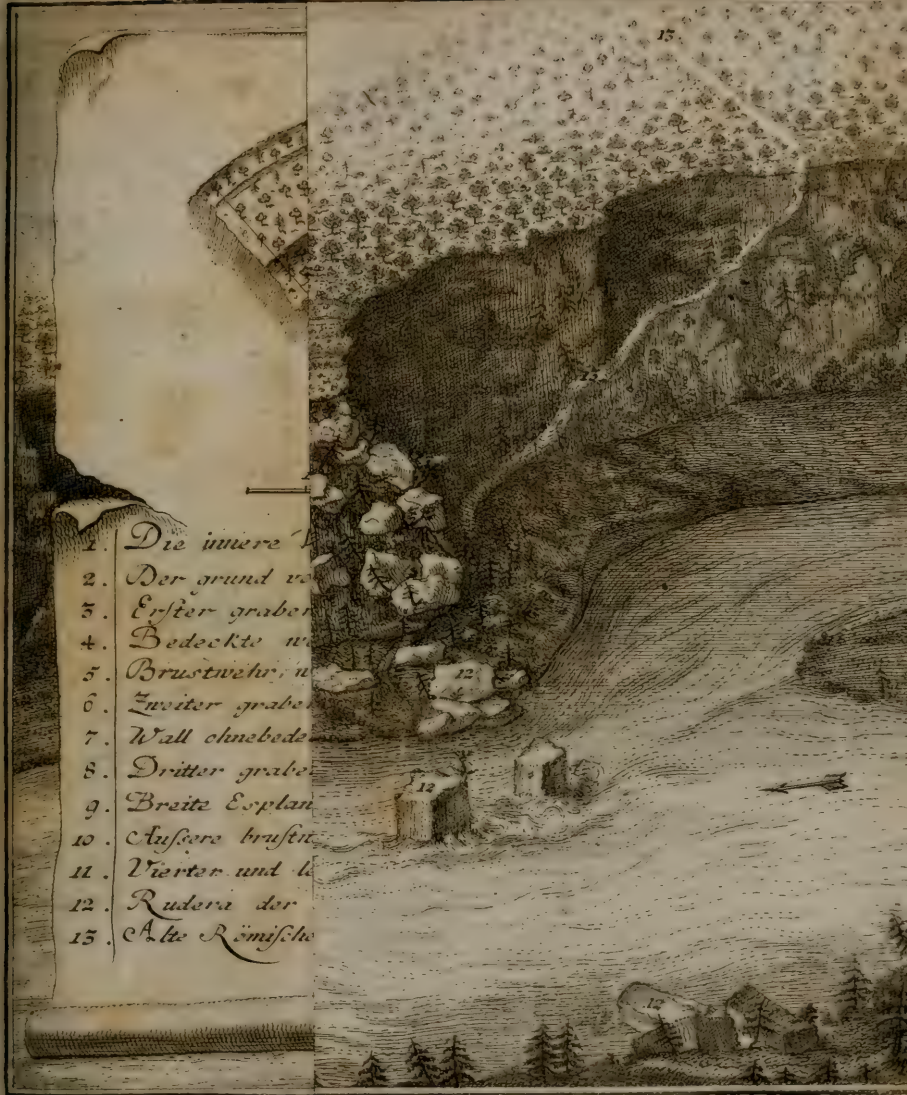 13.
1. Die innere
2. Der grund
3. Erster graben
4. Bedeckte
5. Brustwehr
6. Zweiter grabe
7. Wall ohnebede
8. Dritter grabe
9. Breite Esplan
10. Äussere brustw
11. Vierter und le
12. Rudera der
13. Alte Römische
12
12
12